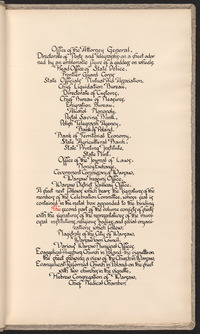 Office of the Attorney General,
Directorate of Posts and Telegraphs on a sheet ador-
ned by an emblematic figure of a goddess on wheels.
Head Office of State Police,
Frontier Guard Corps
State Officials' Mutual Aid Association,
Chief Liquidation Bureau,
Directorate of Customs,
Chief Bureau of Measures,
Education Bureau,
Alcohol Monopoly,
Postal Saving Bank,
Polish Telegraph Agency,
Bank of Poland,
Bank of Territorial Economy,
State Agricultural Bank,
State Printing Institute,
State Mint,
Office of the Journal of Laws,
Money Exchange,
Government Commissary of Warsaw,
Warsaw District
A sheet next follows which bears the signatures of the
members of the Celebration Committee, whose seal is
contained in the metal box appended to the binding
The second part of the volume consists of sheets
with the signatures of the representatives of the munici-
pal institutions, religious bodies, and social organi-
zations, which follow:
Magistrate of the City of Warsaw,
Warsaw Town Council,
Various Warsaw Municipal Offices,
Evangelical Augsburg Church in Poland; the vignette on
the sheet represents a view of the Church in Warsaw
Evangelical Reformed Church in Poland; on the sheet
with two churches in the vignette,
Hebrew Community of Warsaw,
Chief Medical Chamber,